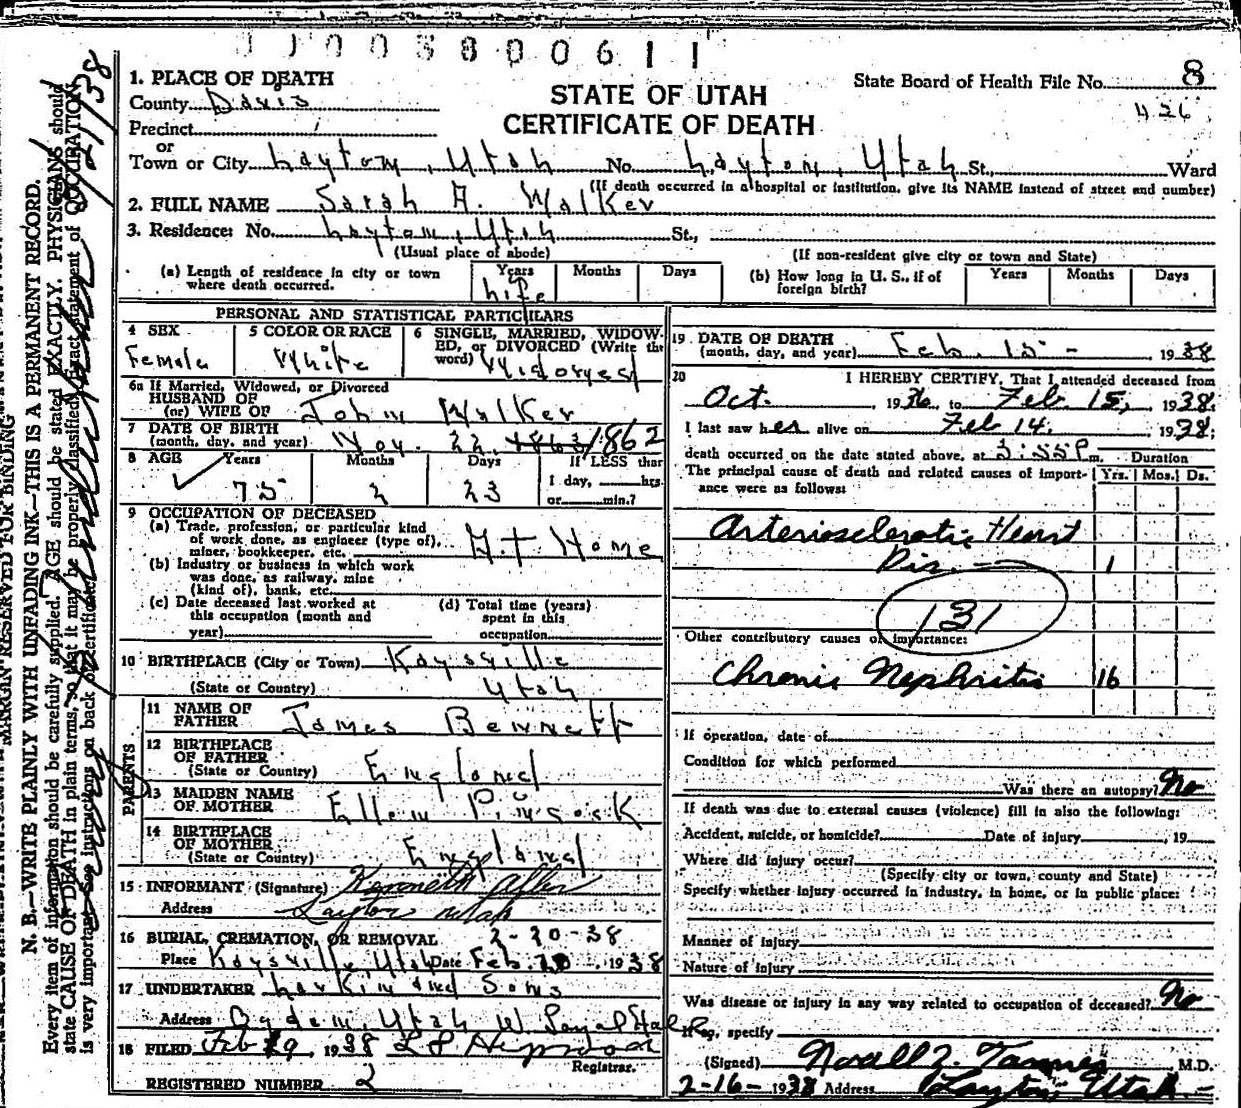 1003800611
1. PLACE OF DEATH
County Davis
State Board of Health File No. 8
426
STATE OF UTAH
CERTIFICATE OF DEATH
Precinct
or
Town or City Layton, Utah No. Layton, Utah St., Ward
(If death occurred in a hospital or institution, give its NAME instead of street and number)
2. FULL NAME Sarah A. Walker
3. Residence: No. Layton, Utah St.,
(Usual place of abode) (If non-resident give city or town and State)
(a) Length of residence in city or town where death occurred. Years Months Days
Life
(b) How long in U. S., if of foreign birth? Years Months Days
PERSONAL AND STATISTICAL PARTICULARS
4 SEX
Female
5 COLOR OR RACE
White
6 SINGLE, MARRIED, WIDOW-
ED, or DIVORCED (Write the
word) Widowed
6a If Married, Widowed, or Divorced
HUSBAND OF
(or) WIFE OF John Walker
7 DATE OF BIRTH
(month, day, and year) Nov. 22, 1863 / 1862
8 AGE Years Months Days If LESS than
1 day, hrs.
or min.?
75 2 23
9 OCCUPATION OF DECEASED
(a) Trade, profession, or particular kind
of work done, as engineer (type of),
miner, bookkeeper, etc. At Home
(b) Industry or business in which work
was done, as railway, mine
(kind of), bank, etc.
(c) Date deceased last worked at
this occupation (month and
year)
(d) Total time (years)
spent in this
occupation
10 BIRTHPLACE (City or Town) Kaysville
(State or Country) Utah
PARENTS
11 NAME OF
FATHER James Bennett
12 BIRTHPLACE
OF FATHER
(State or Country) England
13 MAIDEN NAME
OF MOTHER Ellen
14 BIRTHPLACE
OF MOTHER
(State or Country) England
15 INFORMANT (Signature) Kenneth
Address Layton Utah
16 BURIAL, CREMATION, OR REMOVAL 2-20-38
Place Kaysville, Utah Date Feb. 20, 1938
17 UNDERTAKER Larkin and Sons
Address Ogden, Utah
18 FILED Feb 19, 1938
Registrar.
REGISTERED NUMBER 2
19 DATE OF DEATH
(month, day, and year) Feb. 15 - 1938
20 I HEREBY CERTIFY, That I attended deceased from
Oct. 1936, to Feb. 15, 1938.
I last saw her alive on Feb 14. 1938;
death occurred on the date stated above, at 3:55 P m.
Duration
The principal cause of death and related causes of import-
ance were as follows: Yrs. Mos. Ds.
Arteriosclerotic Heart
Dis. 1
131
Other contributory causes of importance:
Chronic Nephritis 16
If operation, date of
Condition for which performed
Was there an autopsy? No
If death was due to external causes (violence) fill in also the following:
Accident, suicide, or homicide? Date of injury , 19
Where did injury occur?
(Specify city or town, county and State)
Specify whether injury occurred in industry, in home, or in public place:
Manner of injury
Nature of injury
Was disease or injury in any way related to occupation of deceased? No
If so, specify
(Signed) Noall Z. Tanner M.D.
2-16-1938 Address Layton, Utah
MARGIN RESERVED FOR BINDING
N. B.—WRITE PLAINLY WITH UNFADING INK—THIS IS A PERMANENT RECORD.
Every item of information should be carefully supplied. AGE should be stated EXACTLY. PHYSICIANS should
state CAUSE OF DEATH in plain terms, so that it may be properly classified. Exact statement of OCCUPATION
is very important. See instructions on back of certificate.